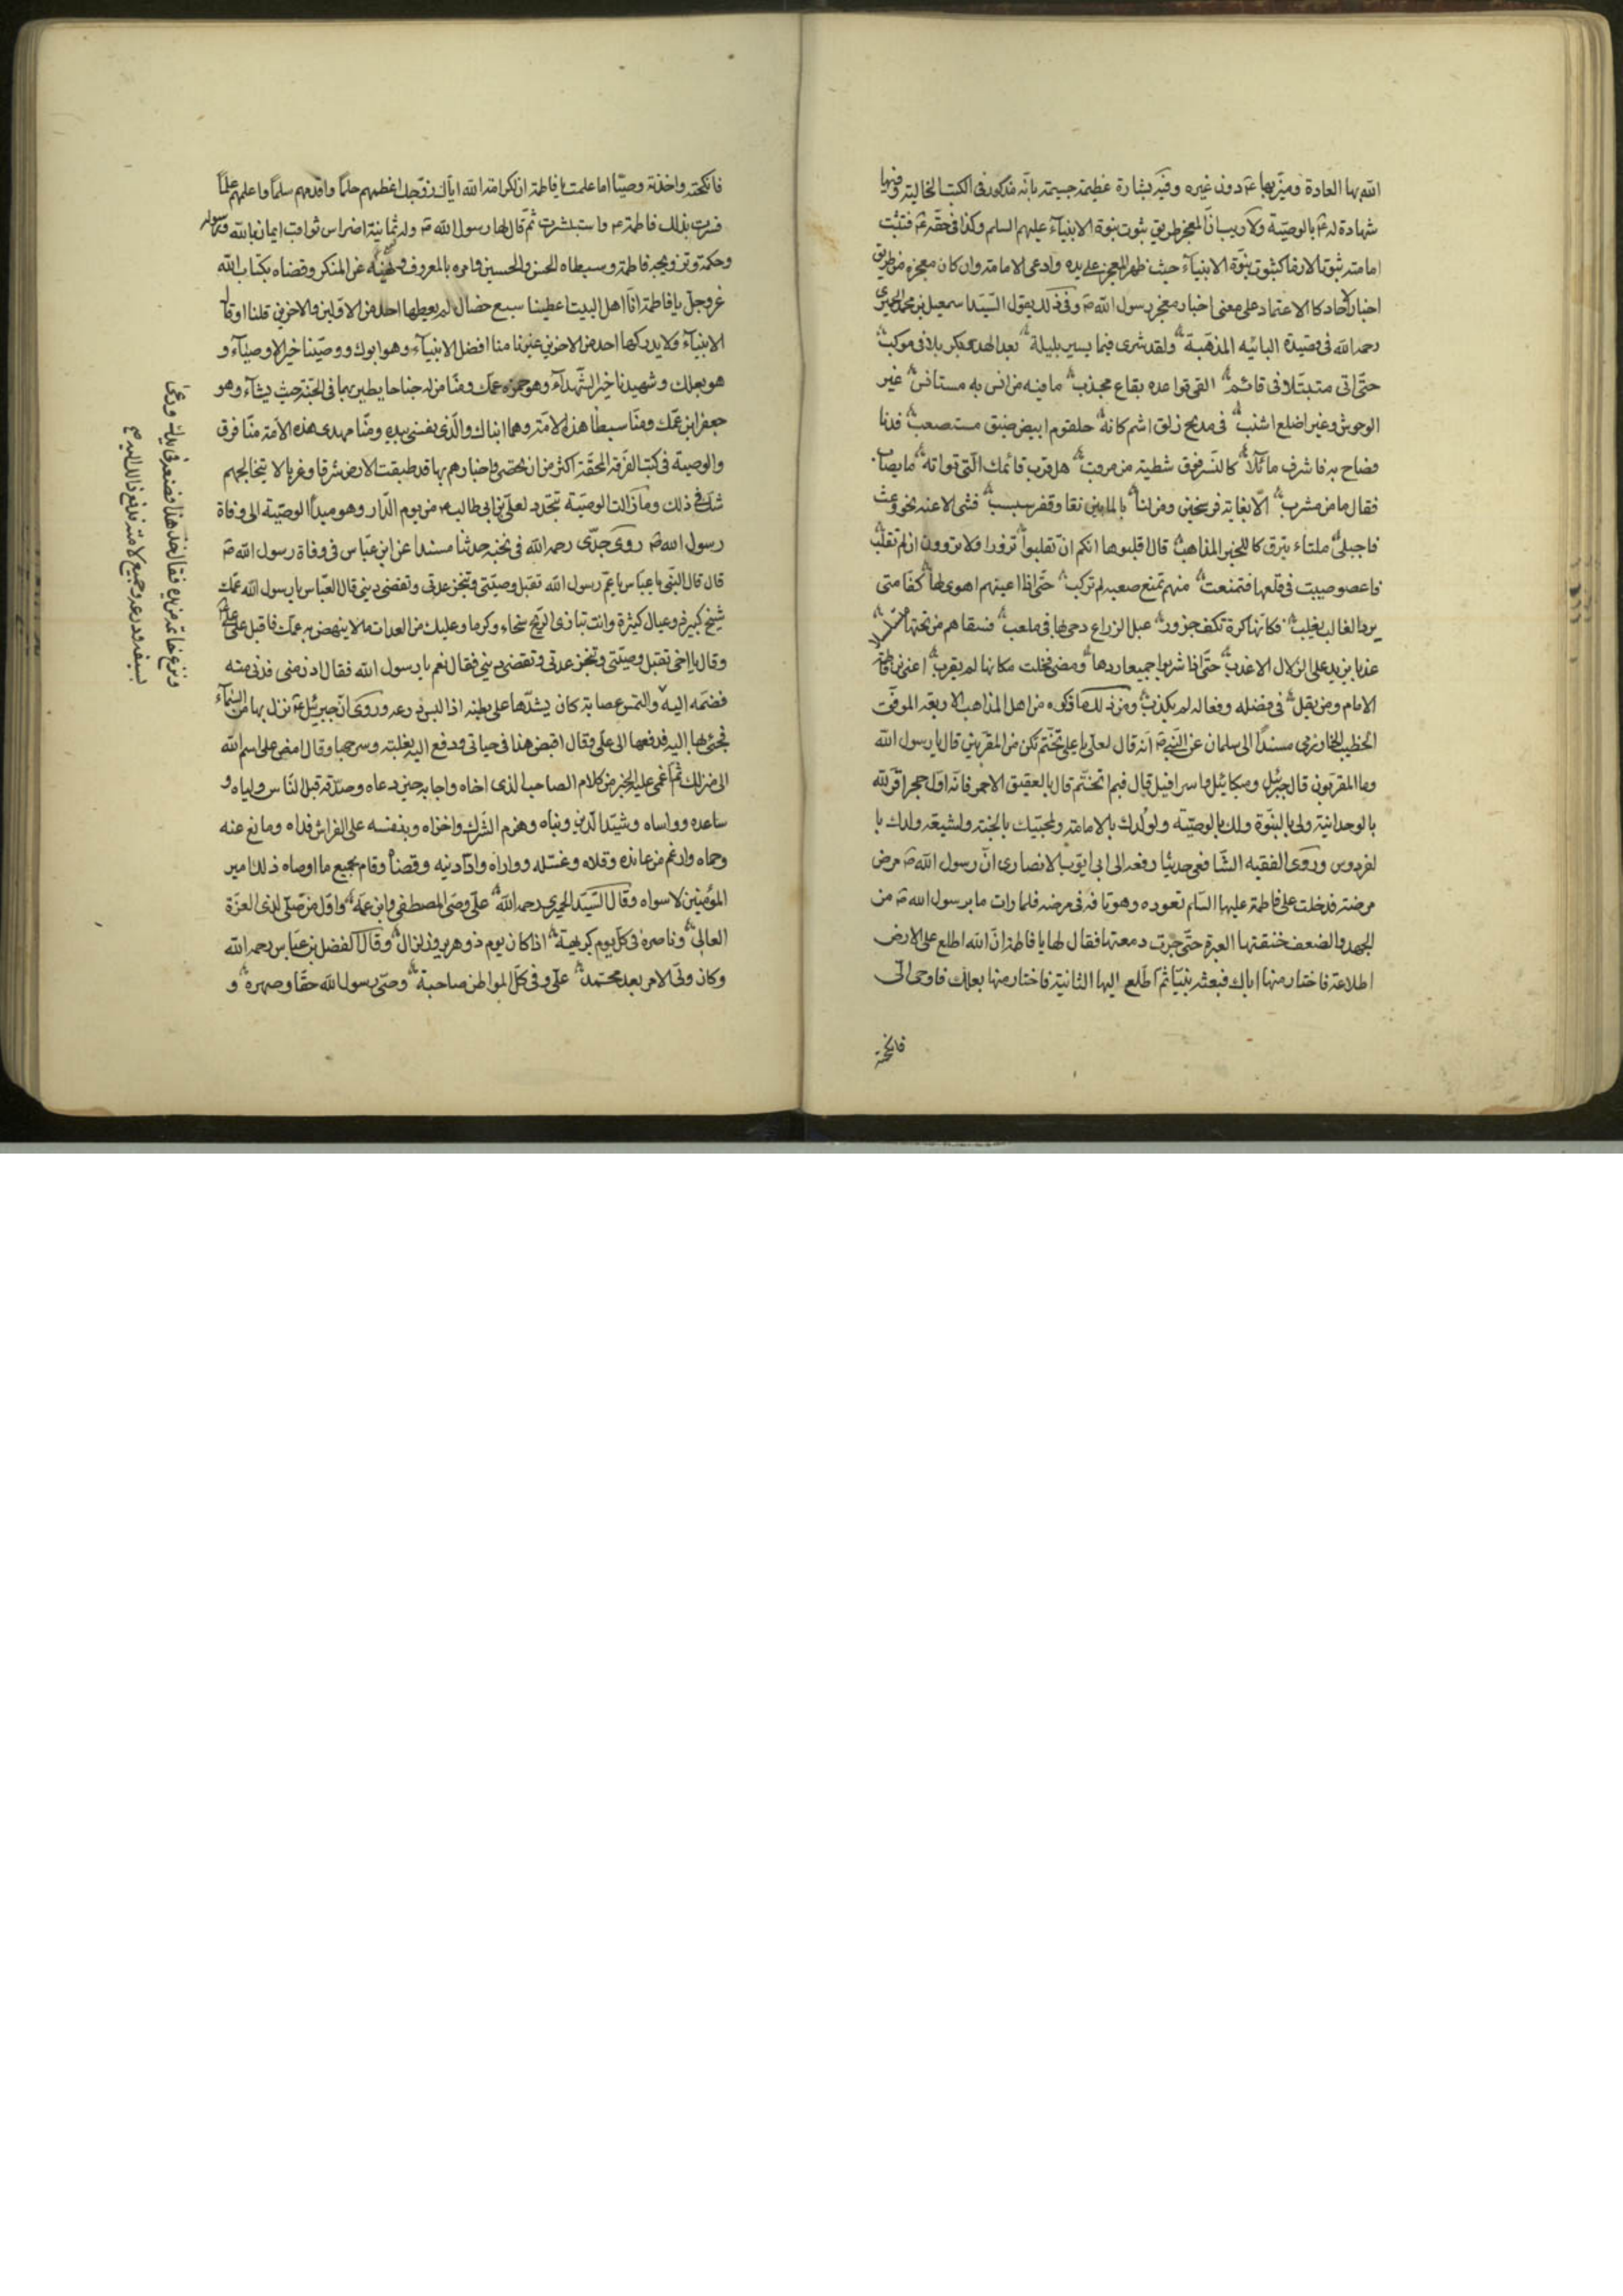 الله بها العادة وميّزه بها عم دون غيره وفيه بشارة عظيمة جسيمة بانّه مذكور فى الكتب الخالية وفيها
شهادة له عم بالوصيّة ولا ريب انّ المعجز طريق ثبوت نبوة الانبيآء عليهم السلم وكذا فى حقّه عم فتثبت
امامته ثبوتا كثبوت نبوّة الانبيآء حيث ظهر المعجز على يده وادعى الامامة وان كان معجزه من طريق
اخبار الآحاد كالاعتماد على معنى اخبار معجز رسول الله ص وفى ذلك يقول السّيّد اسمعيل بن محمد الحميرى
رحمه الله فى قصيدة البائيه المذهّبة ولقد سرى فيما يسير بليلة بعد العشاء بكربلا فى موكب
حتّى اتى متبتّلا فى قائم القى قواعده بقاع مجدب ما فيه من انس به مستانس غير
الوحوش وغير اضلع اشنب فى مدمج زلق اشم كانه حلقوم ابيض ضيق مستصعب فدنا
فصاح به فاشرف ماثلا كالنّسر فوق شظية من مرقب هل قرب قائمك الّتى بواته ما يصاب
فقال ما من مشرب الّا بغاية فرسخين ومن لنا بالماء بين نقا وقفر سبسب فثنى الاعنه نحو وعث
فاجبلى ملساء يبرق كاللجين المذهب قال اقلبوها انكم ان تقلبوا ترووا ولا تروون ان لم تقلب
فاعصوصبت فى قلعها فتمنعت منهم تمنع صعبه لم تركب حتّى اذا اعيتهم اهوى لها كفا متى
يرد الغالب يغلب فكانها كرة بكف حزور عبل الذراع دحى بها فى ملعب فسقاهم من تحتها متسلسلا
عذبا يزيد على الزلال الاعذب حتّى اذا شربوا جميعا ردها ومضى فخلت مكانها لم يقرب اعنى ابن فاطمة
الامام ومن يقل فى فضله وفعاله لم يكذب ومن ذلك ما رواه من اهل المذاهب الاربعة الموفّق
الخطيب الخوارزمى مسندا الى سلمان عن النّبى ص انه قال لعلى يا على تختّم تكن من المقرّبين قال يا رسول الله
وما المقرّبون قال جبرئيل وميكائيل واسرافيل قال فبم اتختّم قال بالعقيق الاحمر فانّه اوّل حجر اقرّ لله
بالوحدانية ولى بالنبوّة ولك بالوصيّة ولولدك بالامامة ولمحبّيك بالجنة ولشيعة ولدك با
لفردوس وروى الفقيه الشّافعى حديثا رفعه الى ابى ايّوب الانصارى انّ رسول الله ص مرض
مرضة فدخلت على فاطمة عليها السّلم تعوده وهو ناقه فى مرضه فلما رات ما برسول الله ص من
الجهد والضعف خنقتها العبرة حتّى جرت دمعتها فقال لها يا فاطمة انّ الله اطلع على الارض
اطلاعة فاختار منها اباك فبعثه نبيّا ثم اطّلع اليها الثانية فاختار منها بعلك فاوحى الى
فانكحته
فانكحته واخذته وصيّا اما علمت يا فاطمة ان لكرامة الله اياك زوّجك اعظمهم حلما واقدمهم سلما واعلمهم علما
فسرت بذلك فاطمة ع واستبشرت ثمّ قال لها رسول الله ص وله ثمانية اضراس ثواقب ايمان بالله وبرسوله
وحكمة وتزويجه فاطمة وسبطاه الحسن والحسين وامره بالمعروف ونهيه عن المنكر وقضاه بكتاب الله
عز وجل يا فاطمة انّا اهل البيت اعطينا سبع خصال لم يعطها احد من الاوّلين والآخرين قبلنا او قال
الانبيآء ولا يدركها احد من الآخرين غيرنا منا افضل الانبيآء وهو ابوك ووصيّنا خير الاوصيآء و
هو بعلك وشهيدنا خير الشّهدآء وهو حمزه عمّك ومنّا من له جناحا يطير بهما فى الجنّة حيث يشآء وهو
جعفر ابن عمّك ومنّا سبطا هذه الامّة وهما ابناك والّذى نفسى بيده ومنّا مهدى هذه الامة منّا فرق
والوصية فى كتب الفرقه المحقّة اكثر من ان تحصى فاخبارهم بها قد طبقت الارض شرقا وغربا لا يتخالجهم
شك فى ذلك وما زالت الوصيّة تتجدد لعلى بن ابى طالب ص من يوم الدّار وهو مبدأ الوصيّة الى وفاة
رسول الله ص روى جدّى رحمه الله فى نخبه حديثا مسندا عن ابن عبّاس فى وفاة رسول الله ص
قال قال النّبى يا عبّاس يا عمّ رسول الله تقبل وصيّتى وتنجز عدتى وتقضى دينى قال العبّاس يا رسول الله عمّك
شيخ كبير ذو عيال كثيرة وانت تبارى الرّيح سخاء وكرما وعليك من العدات ما لا ينهض به عمّك فاقبل على علىّ
وقال يا اخى تقبل وصيّتى وتنجز عدتى وتقضى دينى فقال نعم يا رسول الله فقال ادن منى فدنى منه
فضمّه اليه والتمس عصابة كان يشدّها على بطنه اذا لبس درعه وروى انّ جبرئيل عم نزل بها من السّمآء
فجئى بها اليه فدفعها الى على وقال اقبض هذا فى حياتى ودفع اليه بغلته وسرجها وقال امض على اسم الله
الى منزلك ثمّ اغمى عليه الخبر من كلام الصاحب الذى اخاه واجابه حين دعاه وصدّقه قبل النّاس ولباه و
ساعده وواساه وشيّد الّدين وبناه وهزم الشّرك واخزاه وبنفسه على الفراش فداه ومانع عنه
وحماه وارغم من عانده وقلاه وغسّله وواراه وادّى دينه وقضاه وقام بجميع ما اوصاه ذلك امير
المؤمنين لا سواه وقال السّيّد الحميرى رحمه الله علىّ وصىّ المصطفى وابن عمّه واوّل من صلّى لذى العزّة
العالى وناصره فى كلّ يوم كريهة اذا كان يوم ذو هرير وزلزال وقال الفضل بن عبّاس رحمه الله
وكان ولىّ الامر بعد محمّد علىّ وفى كلّ المواطن صاحبه وصىّ رسول الله حقّا وصهره و
ونزع خاتمه من يده فقال خذ هذا فضعه فى يدك ودعى
بسيفه ودرعه وجميع لامته فدفع ذلك اليه صم